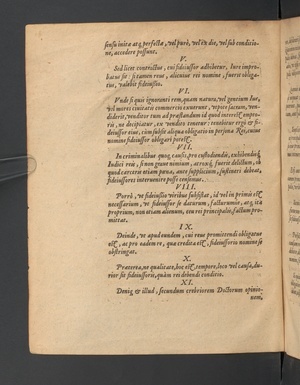 sensu inita atq; perfecta, vel purè, vel in die, vel sub conditio-
ne, accedere possunt.
V.
Sed licet contractus, cui fideiussor adhibetur, iure impro-
batus sit: si tamen reus, alicuius rei nomine, fuerit obliga-
tus, valebit fideiussio.
VI.
Vnde si quis ignoranti rem, quam natura, vel gentium ius,
vel mores ciuitatis commercio exuerunt,
vendiderit, venditor tum ad præstandum id quod interest empto-
ri, ne deciperetur, ex vendito tenetur: tenebitur ergo &
fideiussor eius, cum subsit aliqua obligatio in persona Rei, cuius
nomine fideiussor obligari potest.
VII.
In criminalibus quoq; causis, pro custodiendi, exhibendi
Iudici reis, si non grauè nimium, atrox, fuerit delictum, ob
quod carcerem etiam pœna, aut supplicium, sustinere debeat,
fideiussores interuenire posse censemus.
VIII.
Porrò, vt fideiussio viribus subsistat, id vel in primis est
necessarium, vt fideiussor se daturum, facturumue, atq; ita
proprium, non etiam alienum, eius rei principalis, factum pro-
mittat.
IX.
Deinde, vt apud eundem, cui reus promittendi obligatus
est, ac pro eadem re, qua credita est, fideiussoris nomine se
obstringat.
X.
Præterea, ne qualitate, hoc est, tempore, loco vel causa, du-
rior sit fideiussoris, quàm rei debendi conditio.
XI.
Deniq; & illud, secundum crebriorem Doctorum opinio-
nem,